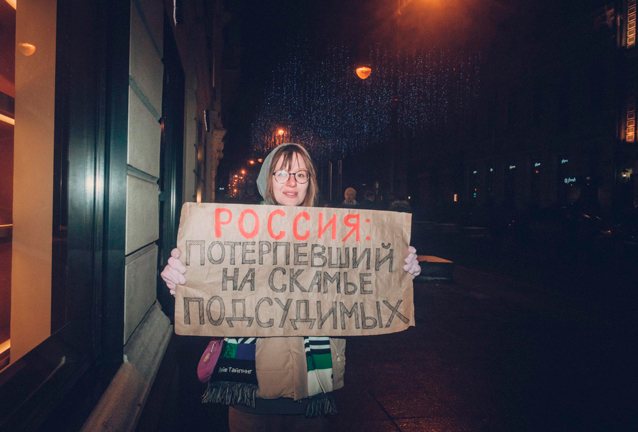 РОССИЯ:
ПОТЕРПЕВШИЙ
НА СКАМЬЕ
ПОДСУДИМЫХ